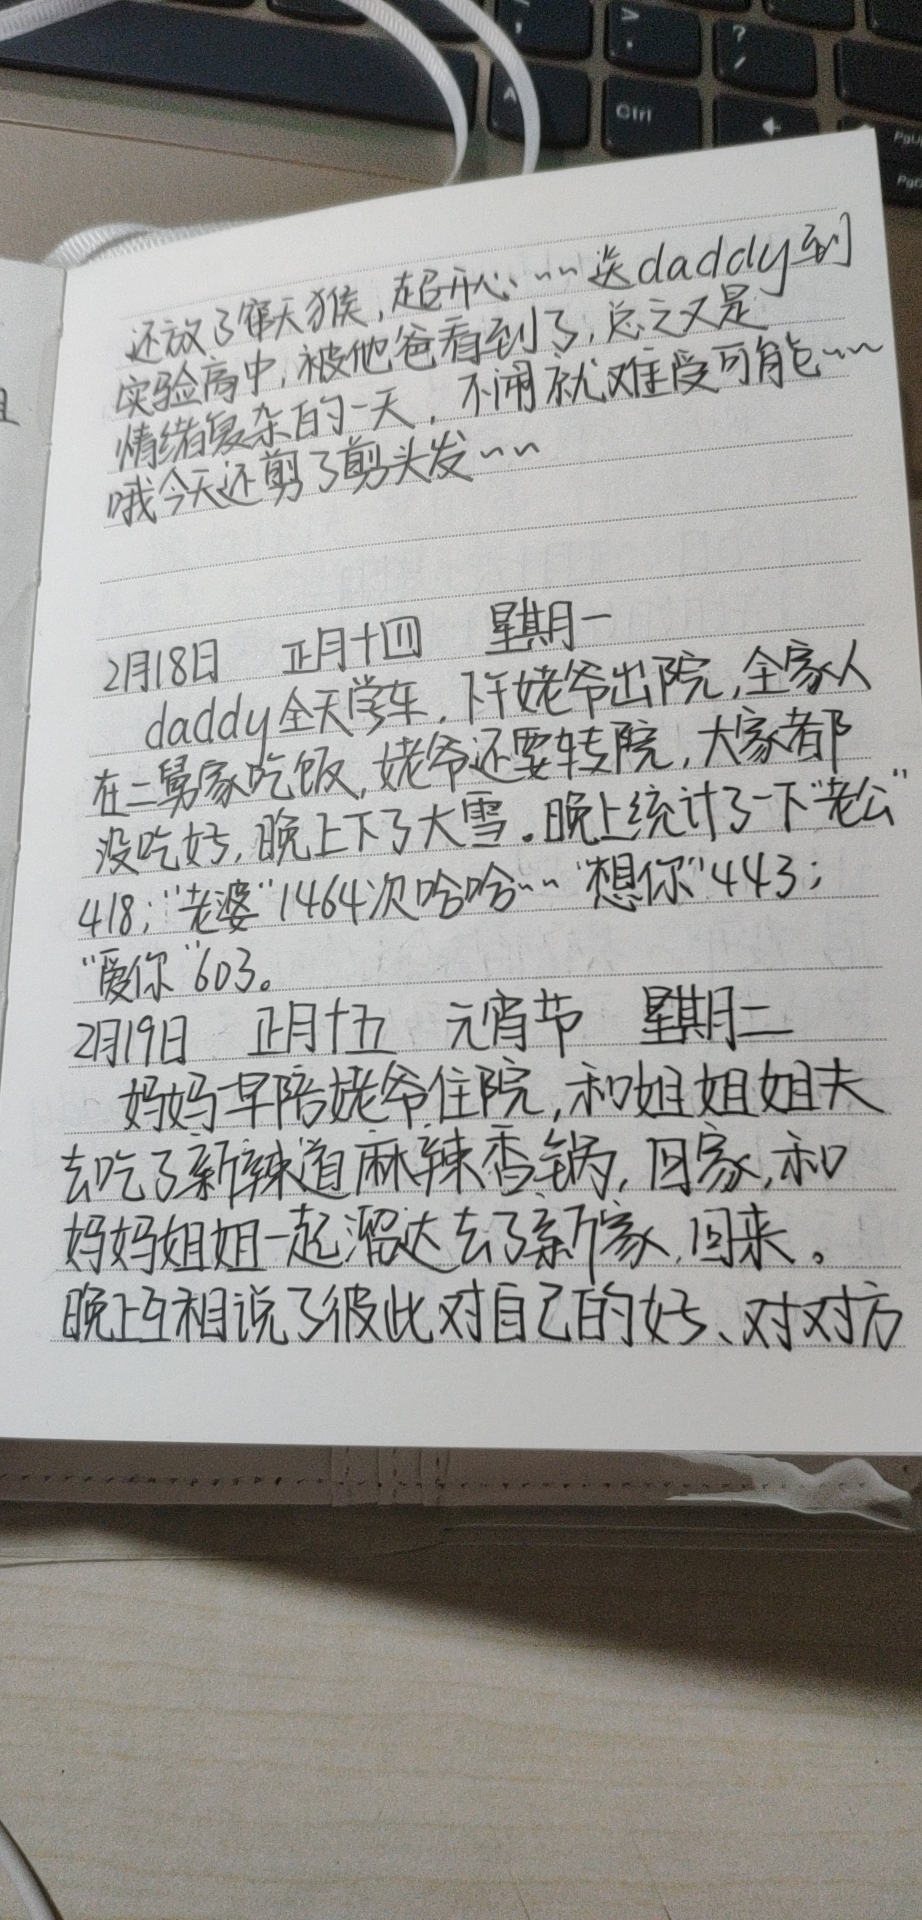 Ctrl
PgUp
还放了窜天猴，超开心、~~送daddy到
实验高中，被他爸看到了，总之又是
情绪复杂的一天，不闹就难受可能~~
哦今天还剪了剪头发~~
2月18日 正月十四 星期一
daddy全天学车，下午姥爷出院，全家人
在二舅家吃饭，姥爷还要转院，大家都
没吃好，晚上下了大雪。晚上统计了一下“老公”
418；“老婆”1464次哈哈~~“想你”443；
“爱你”603。
2月19日 正月十五 元宵节 星期二
妈妈早陪姥爷住院，和姐姐姐夫
去吃了新辣道麻辣香锅，回家，和
妈妈姐姐一起溜达去了新家，回来。
晚上互相说了彼此对自己的好、对对方